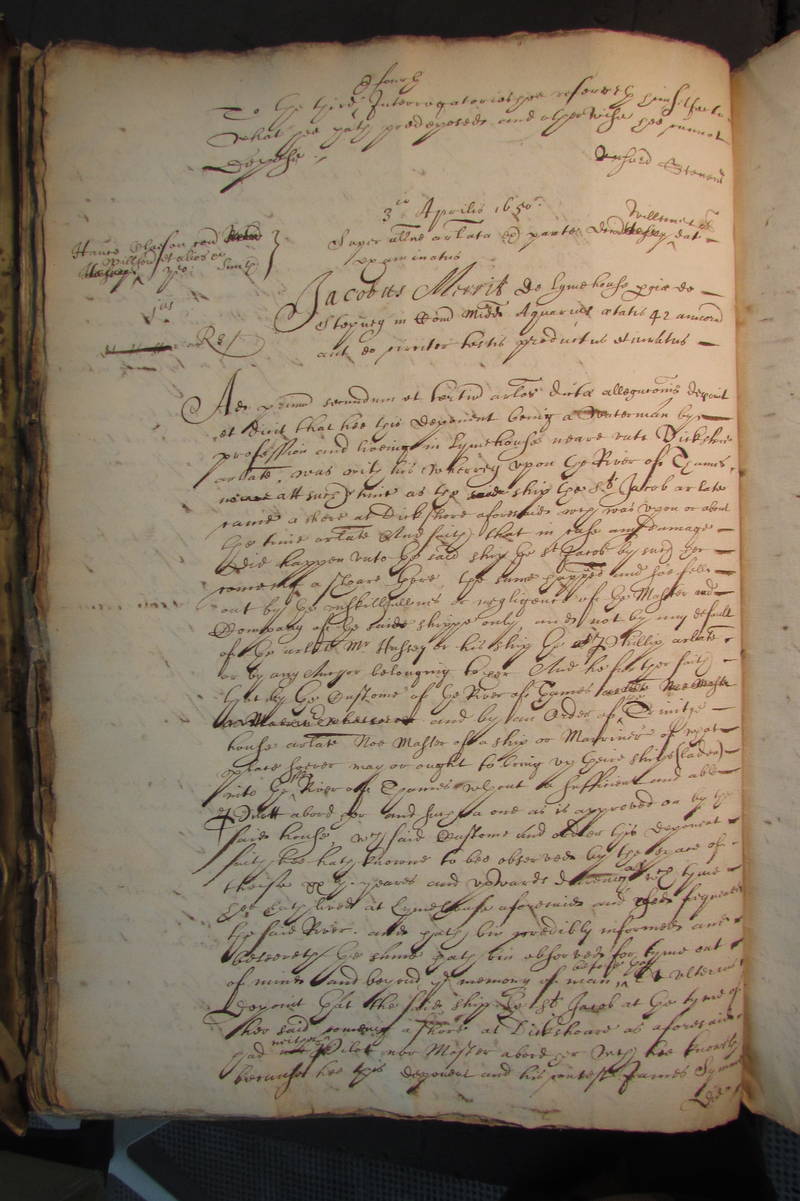 & fourth
To the third Interrogatories hee referreth himselfe to
what hee hath predeposed and otherwise hee cannot
depose./
Richard Stevens
3io Aprilis 1650.
Super arlata ex parte dat
examinatus
Hanns Claeson con
Willemet et alios
Smith
jus
Rp. j
Jacobus Merrit de Lymehouse pochiae de
Stepney in Com Midd Aquarius aetatis 42 annorum
aut eo circiter testis productus et juratus
Ad primum secundum et tertium arlos dictae allegationis deponit
et dicit that hee this deponent being a Waterman by
profession and liveing in Lymehouse neare unto Dickshore
arlate, was with his wherrey upon the River of Thames,
att such time as the ship the St. Jacob arlate
came a shore at Dick shore aforesaid which was upon or about
the time arlate And saith that in case any damage
did happen unto the said ship the St Jacob by such her
comeing a shoare there, the same happed and soe fell
out by the unskillfullness or negligence of the Master and
Company of the saide shippe only, and not by any default
of the arlate Mr Hussey or his ship the Phillip arlate
or by any Anchor belonging to her And he further saith
that by the Custome of the River of Thames
and by an Order of the Trinity
house arlate Noe Master of a ship or Marriner of what
place soever may or ought to bring up theire ships (laden)
into the River of Thames without a sufficient and able
Pilott abord her and such a one as is approved on by the
said house, which said Custome and order this deponent
saith hee hath knowne to bee observed by the space of
theise xx yeares and upwards dureing all which tyme
hee hath lived at Lymehouse aforesaid and frequented
the said River. and hath bin credibly informed and
beleeveth the same hath bin observed for tyme out
of minde and beyond the memory of man Et ulterius
deponit that the said ship the St. Jacob at the tyme of
her said comeing a shore at Dickshoare as aforesaid
had neither Pilot nor Master abord her which hee knoweth
because hee this deponent and his contest James Symonds
did